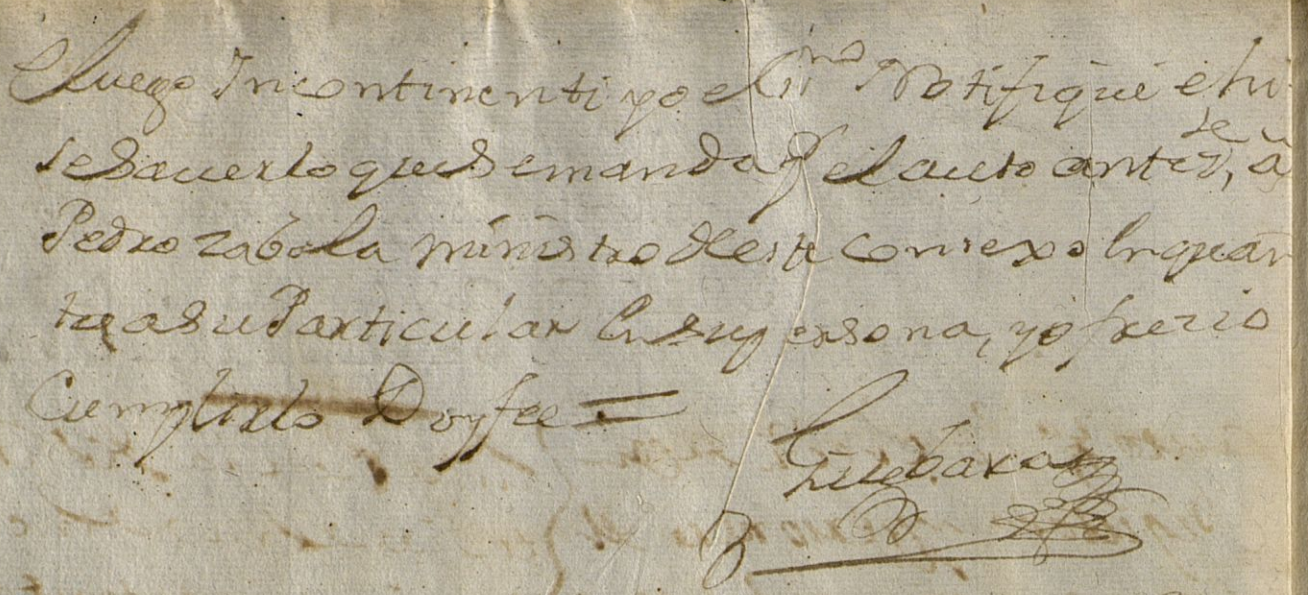 E luego Incontinenti yo el ss.no Notifiqué e hi
se sauer lo que se manda Pr el auto antez.te, â
Pedro zabala ministro deste Consexo en quan
to a su Particular en su persona, y ofrezio
Cumplirlo Doy fee =
Guebara